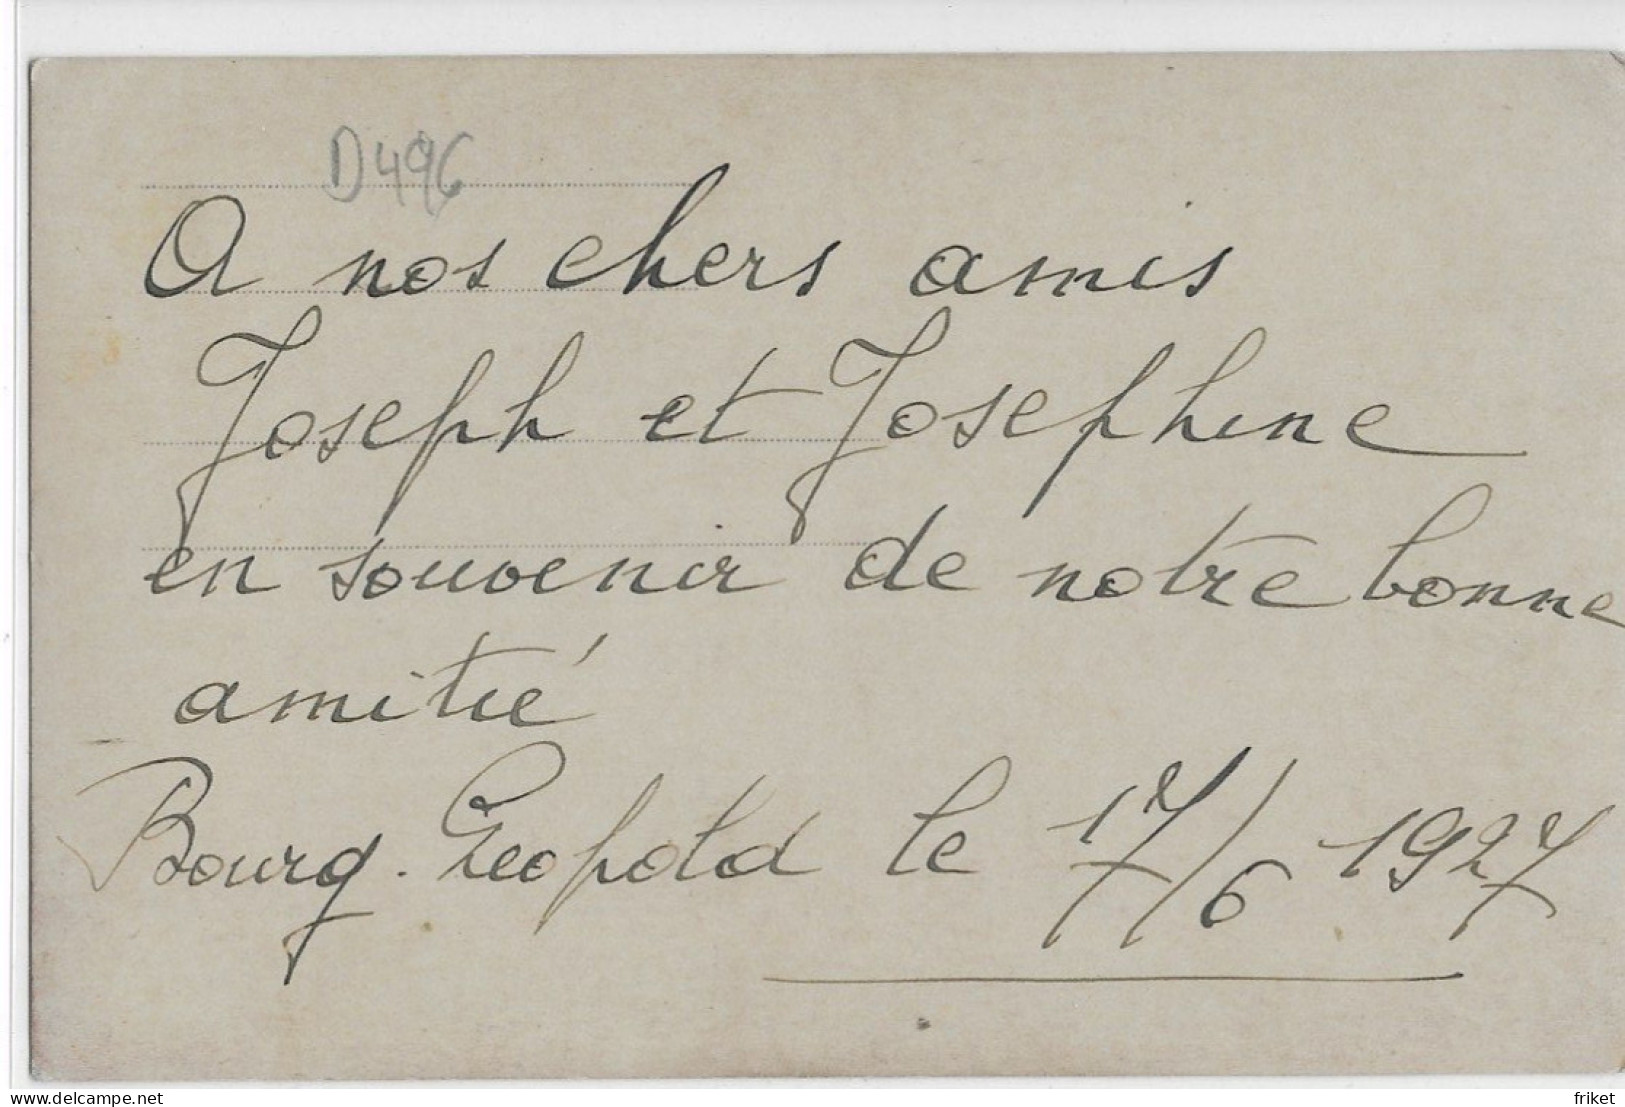 D496
A nos chers amis
Joseph et Josephine
en souvenir de notre bonne
amitié
Bourg-Léopold le 17/6 1927
delcampe.net
friket